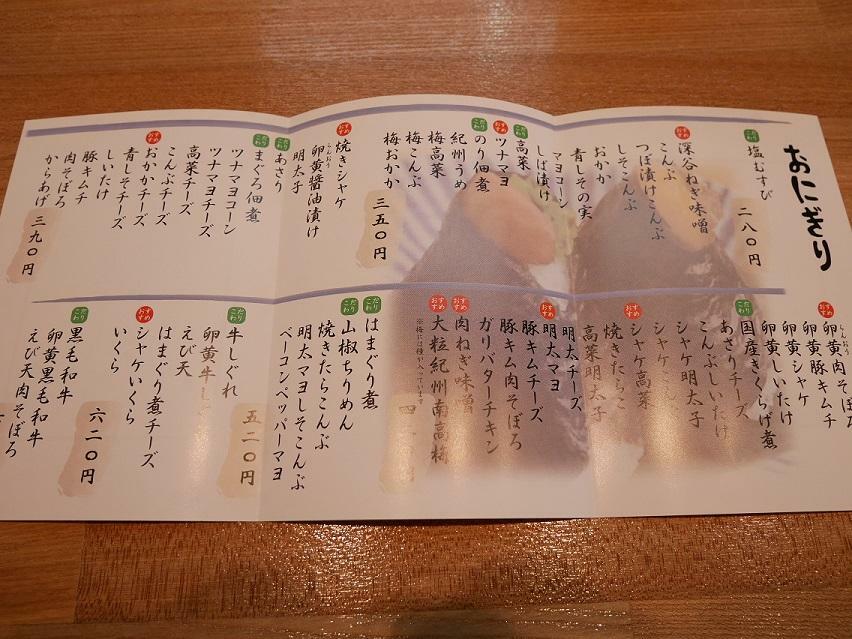 おにぎり
こだわり
塩むすび
二八〇円
おすすめ
深谷ねぎ味噌
こんぶ
つぼ漬けこんぶ
しそこんぶ
おかか
青しその実
マヨコーン
しば漬け
こだわり
高菜
おすすめ
ツナマヨ
こだわり
のり佃煮
紀州うめ
梅高菜
梅こんぶ
梅おかか
三五〇円
おすすめ
焼きシャケ
らんおう
卵黄醤油漬け
明太子
こだわり
あさり
こだわり
まぐろ佃煮
ツナマヨコーン
ツナマヨチーズ
高菜チーズ
こんぶチーズ
おすすめ
おかかチーズ
青しそチーズ
しいたけ
豚キムチ
肉そぼろ
からあげ
三九〇円
おすすめ
らんおう
卵黄肉そぼ
卵黄豚キムチ
卵黄シャケ
卵黄しいたけ
こだわり
国産きくらげ煮
あさりチーズ
こんぶしいたけ
シャケ明太子
シャケこんぶ
おすすめ
シャケ高菜
焼きたらこ
高菜明太子
明太チーズ
おすすめ
明太マヨ
豚キムチーズ
豚キム肉そぼろ
ガリバターチキン
おすすめ
肉ねぎ味噌
おすすめ
大粒紀州南高梅
※梅に種が入っています。
こだわり
はまぐり煮
こだわり
山椒ちりめん
焼きたらこんぶ
明太マヨしそこんぶ
ベーコンペッパーマヨ
こだわり
牛しぐれ
卵黄牛し
えび天
五二〇円
はまぐり煮チーズ
おすすめ
シャケいくら
いくら
六二〇円
こだわり
黒毛和牛
卵黄黒毛和牛
えび天肉そぼろ